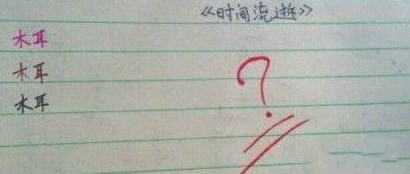 《时间流逝》
木耳
木耳
木耳
?